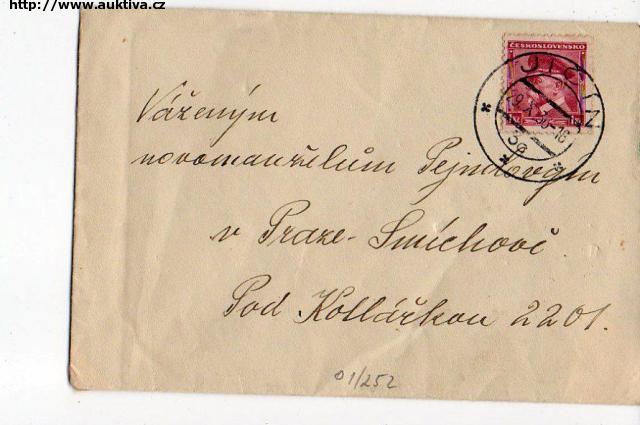 http://www.auktiva.cz
ČESKOSLOVENSKO
JIČÍN
Váženým
novomanželům Pejndovým
v Praze-Smíchově
Pod Kotlářkou 2201.
01/252